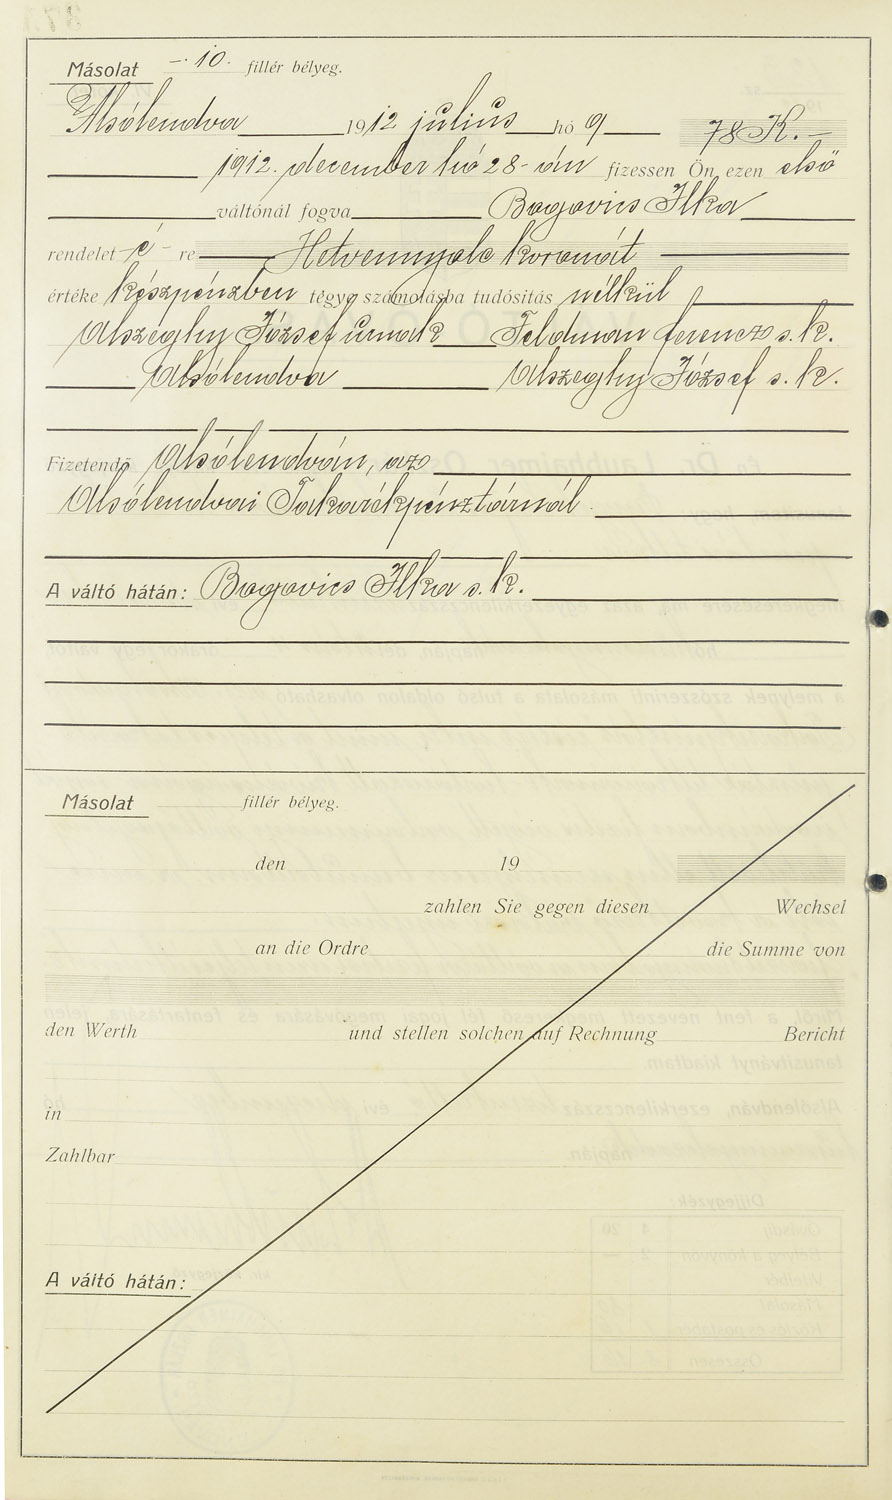 Másolat -·10· fillér bélyeg.
Alsólendva 1912 július hó 9 78 K.-
1912. december hó 28-án fizessen Ön ezen első
váltónál fogva Bagovics Ilka
rendelet -é- re Hetvennyolc koronát
értéke készpénzben tegye számolásba tudósitás nélkül
Alszeghy József úrnak Feldman Ferencz s. k.
Alsólendva Alszeghy József s. k.
Fizetendő Alsólendván, az
Alsólendvai Takarékpénztárnál.
A váltó hátán: Bagovics Ilka s. k.
Másolat fillér bélyeg.
den 19
zahlen Sie gegen diesen Wechsel
an die Ordre die Summe von
den Werth und stellen solchen auf Rechnung Bericht
in
Zahlbar
A váltó hátán: